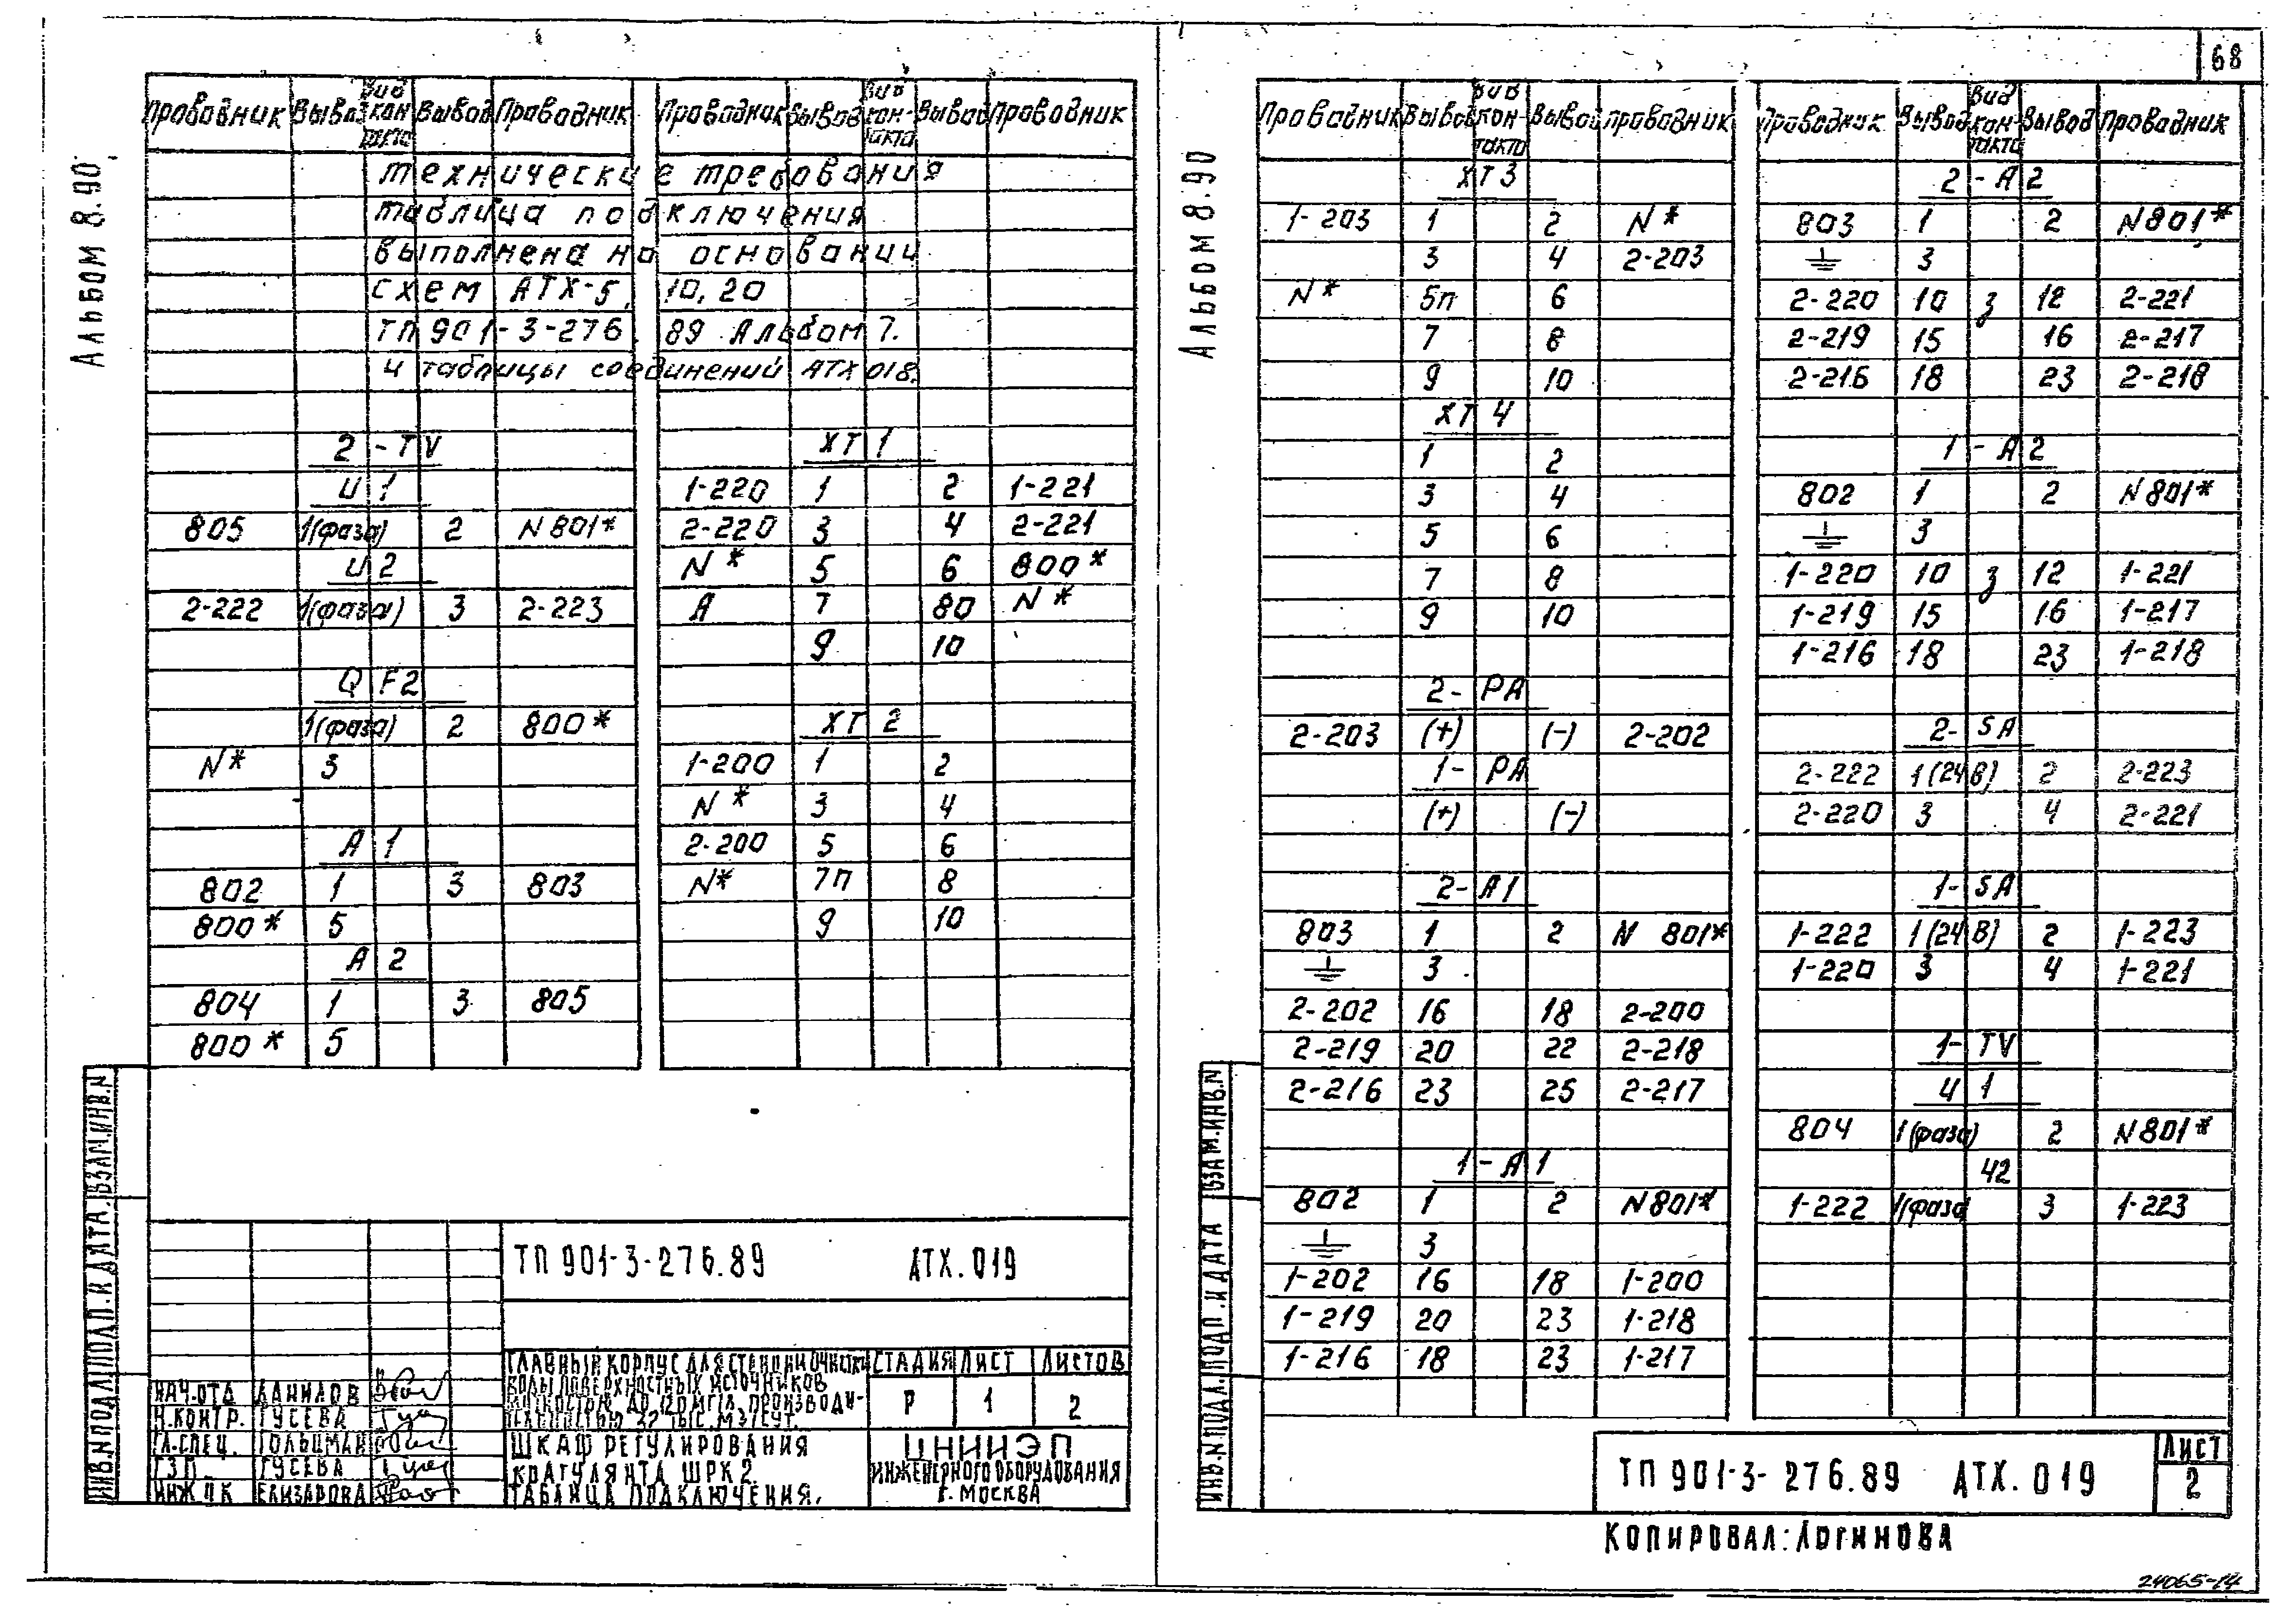 68
Альбом 8.90
Проводник Вывод Вид контакта Вывод Проводник
Технические требования
Таблица подключения
выполнена на основании
схем АТХ-5, 10, 20
ТП 901-3-276.89 Альбом 7.
и таблицы соединений АТХ 018.
2-TV
U1
805 1(фаза) 2 N801*
U2
2-222 1(фаза) 3 2-223
QF2
1(фаза) 2 800*
N* 3
A1
802 1 3 803
800* 5
A2
804 1 3 805
800* 5
Проводник Вывод Вид контакта Вывод Проводник
XT1
1-220 1 2 1-221
2-220 3 4 2-221
N* 5 6 800*
A 7 80 N*
9 10
XT2
1-200 1 2
N* 3 4
2-200 5 6
N* 7п 8
9 10
ИНВ.N ПОДЛ. ПОДП. И ДАТА. ВЗАМ.ИНВ.N
ТП 901-3-276.89 АТХ.019
НАЧ.ОТД ДАНИЛОВ
Н.КОНТР. ГУСЕВА
ГЛ.СПЕЦ. ГОЛЬЦМАН
ГУСЕВА
ИНЖ ЕЛИЗАРОВА
ГЛАВНЫЙ КОРПУС ДЛЯ СТАНЦИИ ОЧИСТКИ
ВОДЫ ПОВЕРХНОСТНЫХ ИСТОЧНИКОВ
МУТНОСТЬЮ ДО 120 МГ/Л, ПРОИЗВОДИ-
ТЕЛЬНОСТЬЮ 32 ТЫС.М3/СУТ.
ШКАФ РЕГУЛИРОВАНИЯ
КОАГУЛЯНТА ШРК2.
ТАБЛИЦА ПОДКЛЮЧЕНИЯ.
СТАДИЯ ЛИСТ ЛИСТОВ
Р 1 2
ЦНИИЭП
ИНЖЕНЕРНОГО ОБОРУДОВАНИЯ
Г. МОСКВА
Альбом 8.90
Проводник Вывод Вид контакта Вывод Проводник
XT3
1-203 1 2 N*
3 4 2-203
N* 5п 6
7 8
9 10
XT4
1 2
3 4
5 6
7 8
9 10
2-PA
2-203 (+) (-) 2-202
1-PA
(+) (-)
2-A1
803 1 2 N 801*
⏚ 3
2-202 16 18 2-200
2-219 20 22 2-218
2-216 23 25 2-217
1-A1
802 1 2 N801*
⏚ 3
1-202 16 18 1-200
1-219 20 23 1-218
1-216 18 23 1-217
Проводник Вывод Вид контакта Вывод Проводник
2-A2
803 1 2 N801*
⏚ 3
2-220 10 з 12 2-221
2-219 15 16 2-217
2-216 18 23 2-218
1-A2
802 1 2 N801*
⏚ 3
1-220 10 з 12 1-221
1-219 15 16 1-217
1-216 18 23 1-218
2-SA
2-222 1(24В) 2 2-223
2-220 3 4 2-221
1-SA
1-222 1(24В) 2 1-223
1-220 3 4 1-221
1-TV
U1
804 1(фаза) 2 N801*
U2
1-222 1(фаза) 3 1-223
ИНВ.N ПОДЛ. ПОДП. И ДАТА ВЗАМ.ИНВ.N
ТП 901-3-276.89 АТХ.019
ЛИСТ
2
КОПИРОВАЛ: ЛОГИНОВА
24065-14